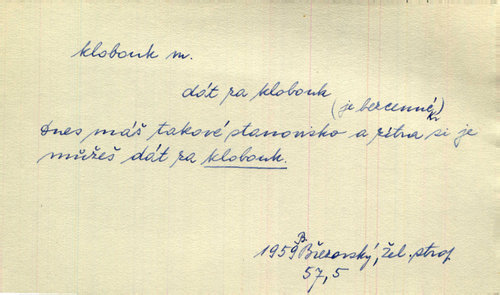 klobouk m.
dát za klobouk
(je bezcenné)
Kr
Dnes máš takové stanovisko a zítra si je
můžeš dát za klobouk.
1959 B Březovský, Žel. strop
57,5